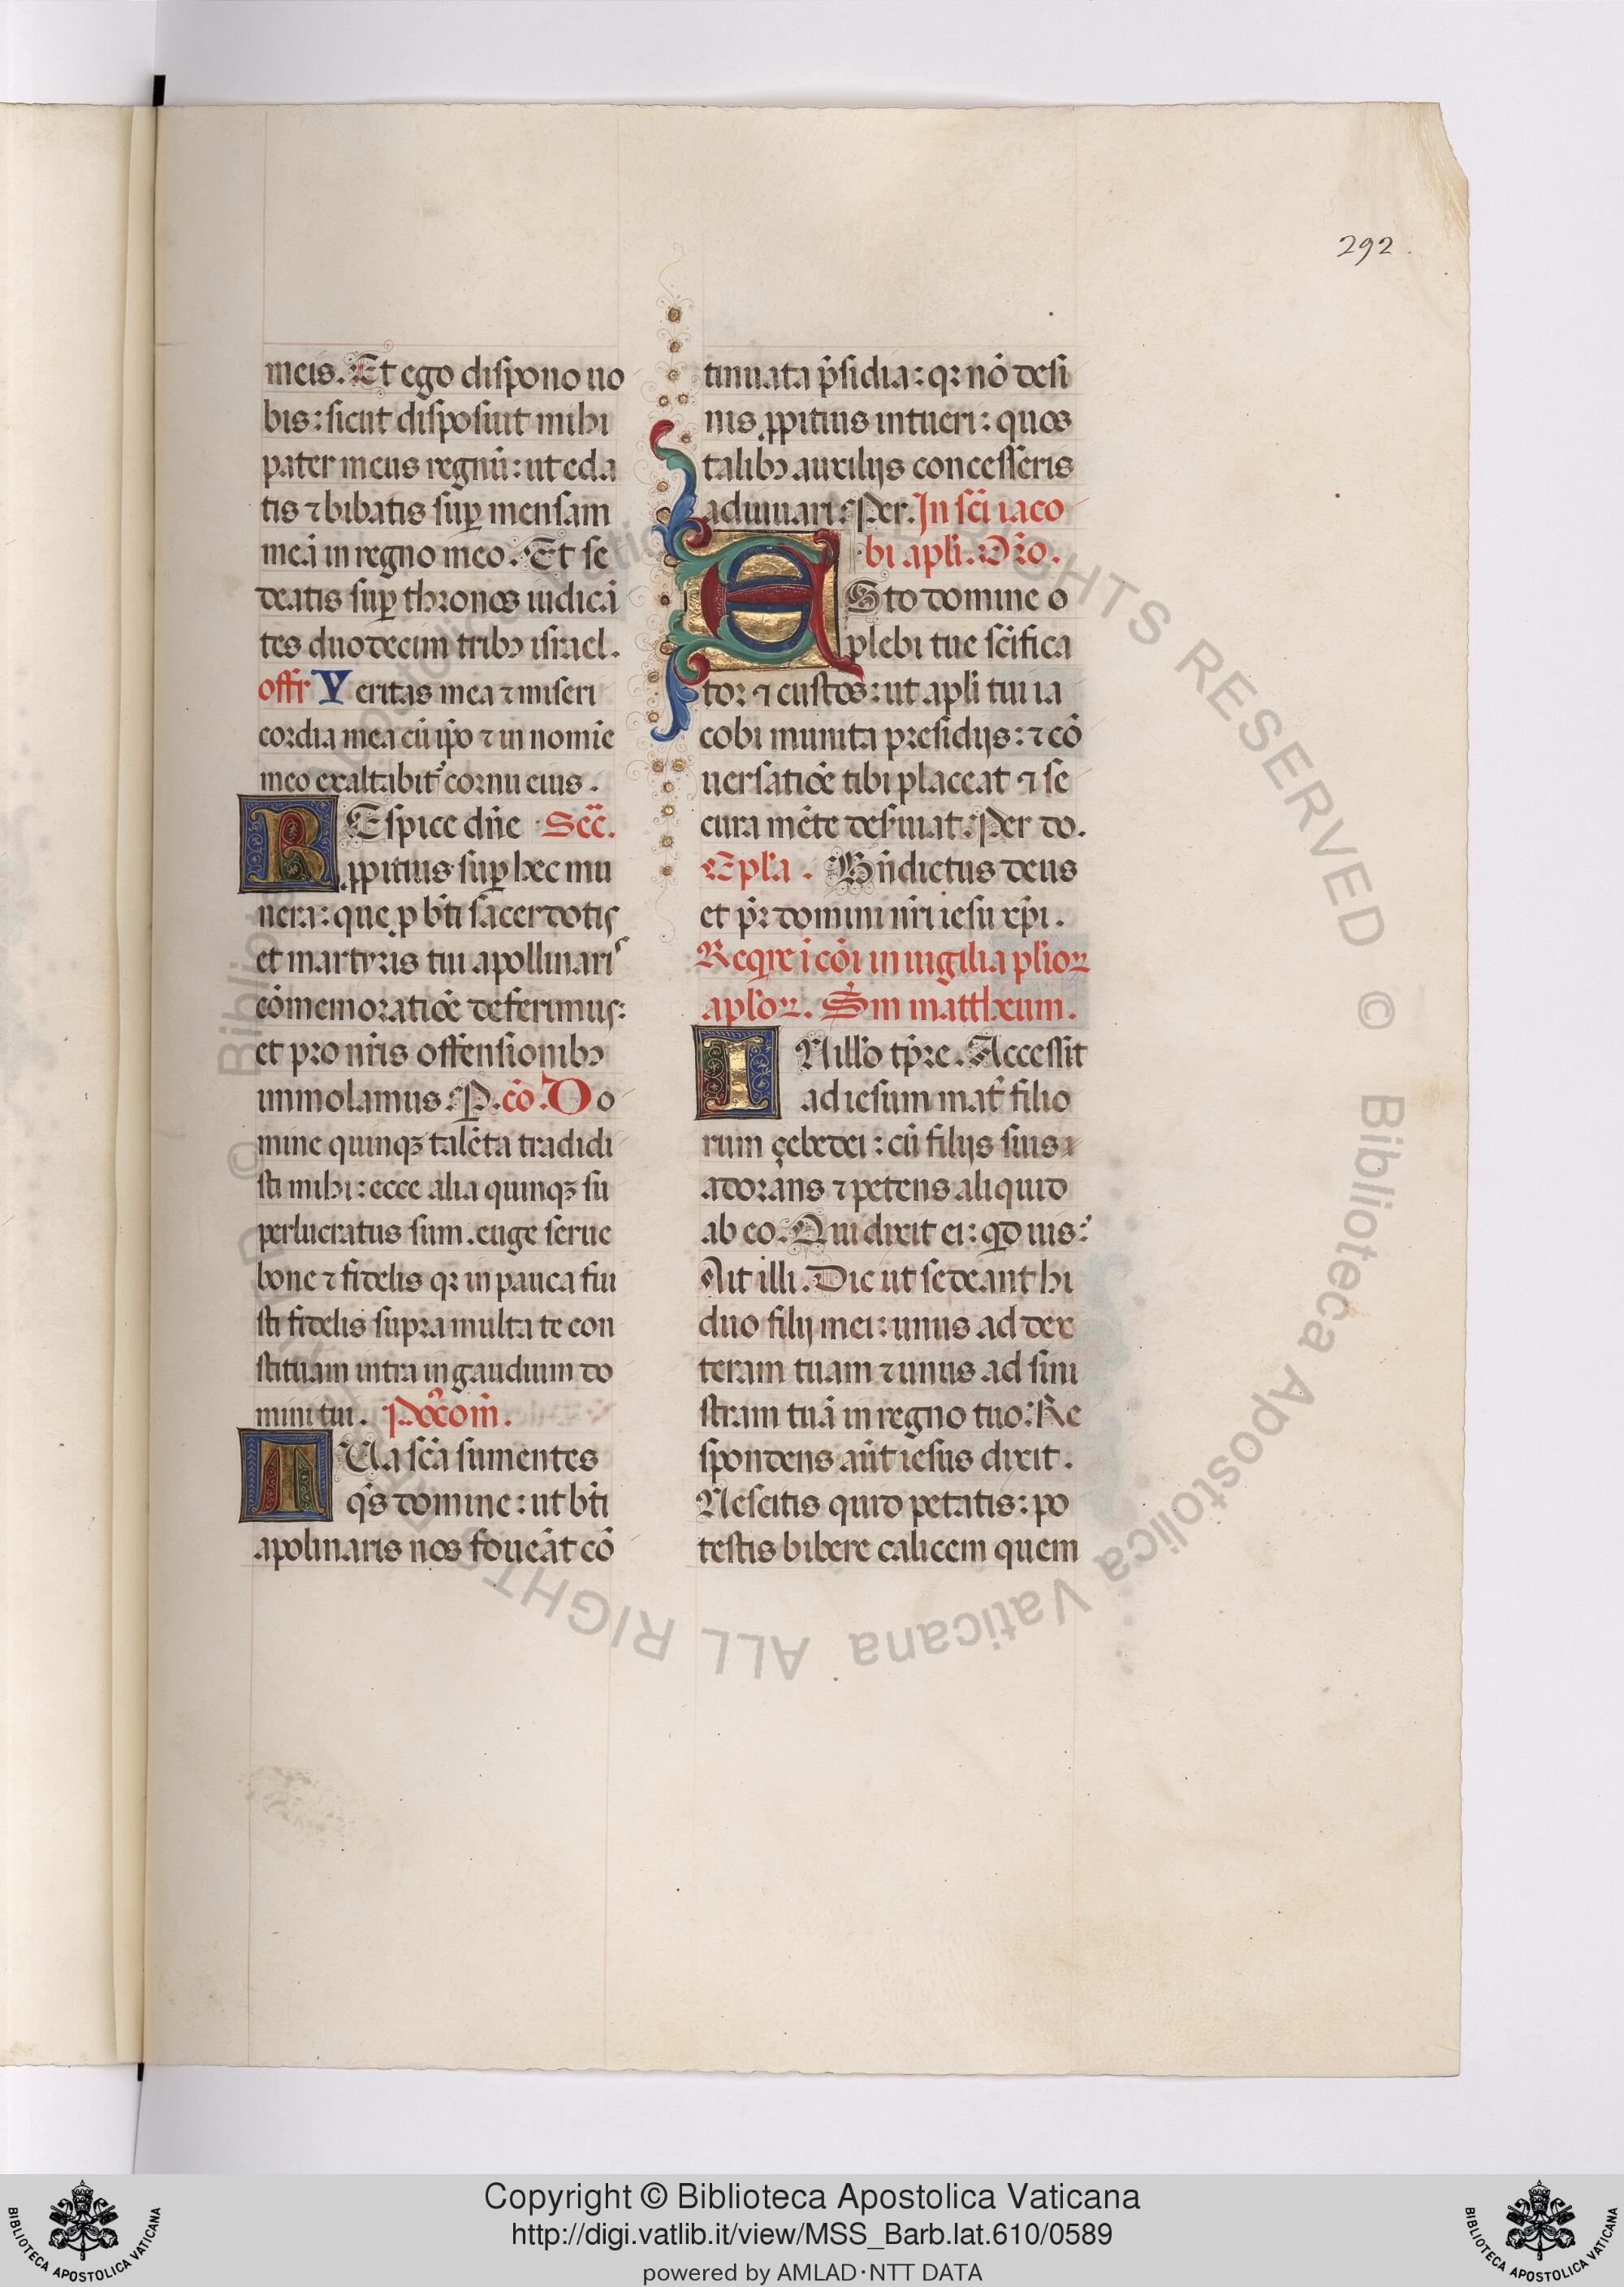 292.
meis. Et ego dispono uo
bis: sicut disposuit mihi
pater meus regnũ: ut eda
tis ⁊ bibatis sup̱ mensam
meã in regno meo. Et se
deatis sup̱ thronos iudicã
tes duodecim tribꝫ israel.
offr̃ Veritas mea ⁊ miseri
cordia mea cũ ip̃o ⁊ in nomĩe
meo exaltabit̃ cornu eius.
REspice dñe Sec̃.
ꝓpitius sup̱ hec mu
nera: que p̱ bt̃i sacerdotis
et martyris tui apollinaris
cõmemoratiõe deferimus:
et pro nr̃is offensionibꝫ
immolamus. P. cõ. Do
mine quinqꝫ talẽta tradidi
sti mihi: ecce alia quinqꝫ su
perlucratus sum. euge serue
bone ⁊ fidelis qꝛ in pauca fui
sti fidelis supra multa te con
stituam intra in gaudium do
mini tui. Pos̃coĩm.
TUa sc̃a sumentes
q̃s domine: ut bt̃i
apolinaris nos foueãt cõ
tinuata p̃sidia: qꝛ nõ desi
nis ꝓpitius intueri: quos
talibꝫ auxilijs concesseris
adiuuari: Per. In sc̃i iaco
bi apl̃i. Or̃o.
ESto domine
plebi tue sc̃ifica
tor ⁊ custos: ut apl̃i tui ia
cobi munita presidijs: ⁊ cõ
uersatiõe tibi placeat ⁊ se
cura mẽte deseruiat. Per do.
Epl̃a. Bñdictus deus
et p̃r domini nr̃i iesu xp̃i.
Reqr̃e ĩ cõi in uigilia plioꝝ
apl̃oꝝ. Sm̃ mattheum.
INillo tp̃re. Accessit
ad iesum mat̃ filio
rum çebedei: cũ filijs suis
adorans ⁊ petens aliquid
ab eo. Qui dixit ei: qd̃ uis?
Ait illi. Dic ut sedeant hi
duo filij mei: unus ad dex
teram tuam ⁊ unus ad sini
stram tuã in regno tuo: Re
spondens aũt iesus dixit.
Nescitis quid petatis: po
testis bibere calicem quem
© Biblioteca Apostolica Vaticana ALL RIGHTS RESERVED
Copyright © Biblioteca Apostolica Vaticana
http://digi.vatlib.it/view/MSS_Barb.lat.610/0589
powered by AMLAD·NTT DATA
BIBLIOTECA APOSTOLICA VATICANA
BIBLIOTECA APOSTOLICA VATICANA